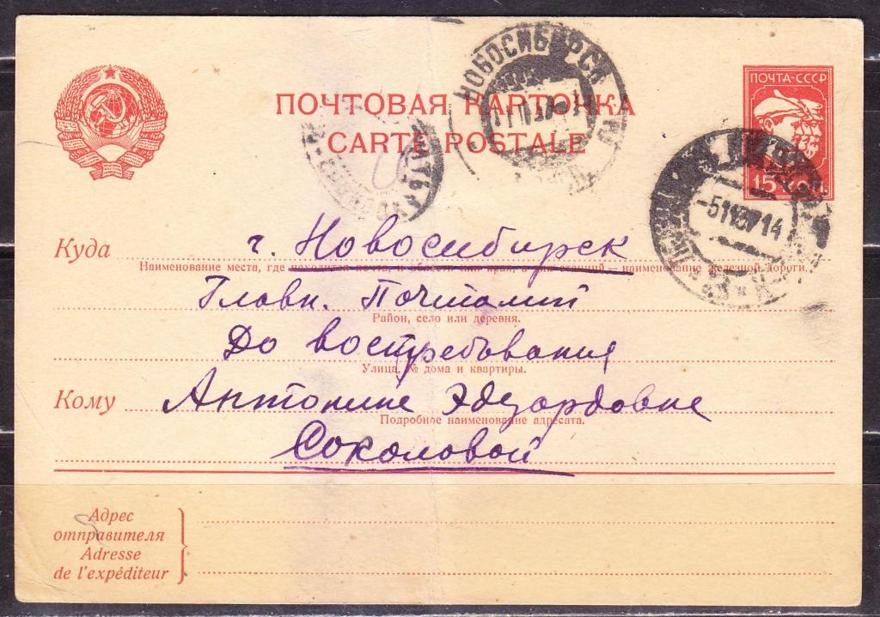 ПОЧТА-СССР
15 КОП.
НОВОСИБИРСК
ПОЧТОВАЯ КАРТОЧКА
CARTE POSTALE
-5 11 37 14
Куда г. Новосибирск
Наименование места, где находится почта, и области или края, а для станций — наименование железной дороги.
Главн. Почтамт
Район, село или деревня.
До востребования
Улица, № дома и квартиры.
Кому Антонине Эдуардовне
Подробное наименование адресата.
Соколовой
Адрес
отправителя
Adresse
de l'expéditeur